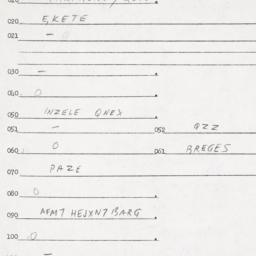 020 EKETE
021 -
030 -
040 0
050 INZELE ONEX
051 - 052 QZZ
060 0 061 BREGES
070 PAZE
080 0
090 AFMT HEJXNT BARG
100 0
-